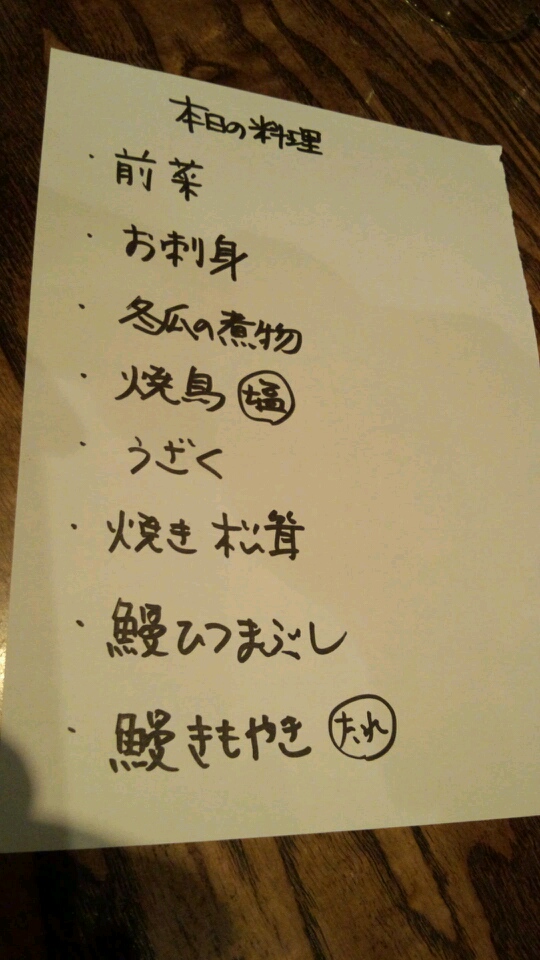 本日の料理
・前菜
・お刺身
・冬瓜の煮物
・焼鳥 塩
・うざく
・焼き松茸
・鰻ひつまぶし
・鰻きもやき たれ